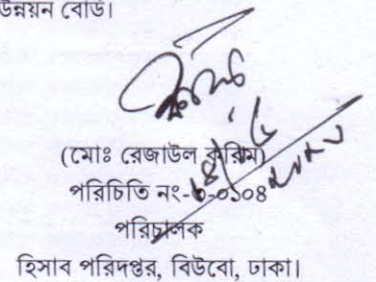 উন্নয়ন বোর্ড।
(মোঃ রেজাউল করিম)
পরিচিতি নং-৬-০১০৪
পরিচালক
হিসাব পরিদপ্তর, বিউবো, ঢাকা।